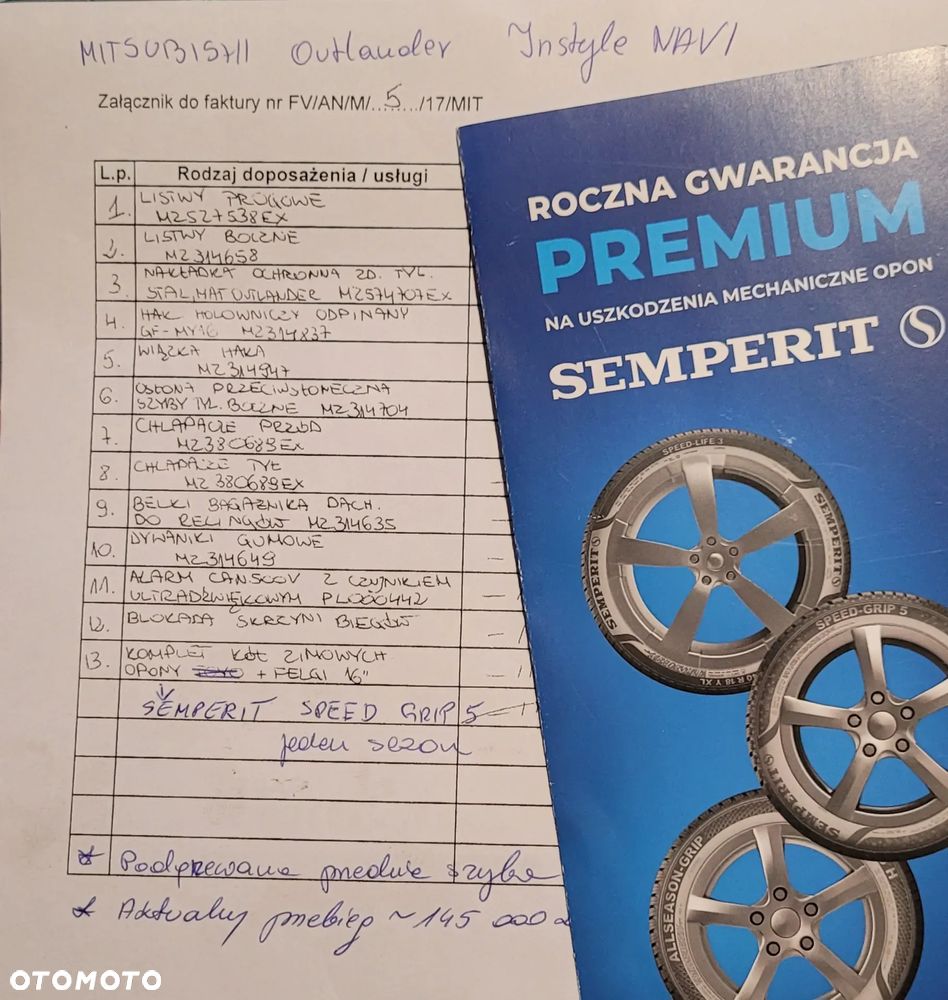 MITSUBISHI Outlander Instyle NAVI
Załącznik do faktury nr FV/AN/M/...5..../17/MIT
L.p. Rodzaj doposażenia / usługi
1. LISTWY PROGOWE
MZ527538EX
2. LISTWY BOCZNE
MZ314658
3. NAKŁADKA OCHRONNA ZD. TYL.
STAL, MAT OUTLANDER MZ574707EX
4. HAK HOLOWNICZY ODPINANY
GF-MY16 MZ314837
5. WIĄZKA HAKA
MZ314947
6. OSŁONA PRZECIWSŁONECZNA
SZYBY TYL. BOCZNE MZ314704
7. CHLAPACZE PRZÓD
MZ380689EX
8. CHLAPACZE TYŁ
MZ380689EX
9. BELKI BAGAŻNIKA DACH.
DO RELINGÓW MZ314635
10. DYWANIKI GUMOWE
MZ314649
11. ALARM CAN Z CZUJNIKIEM
ULTRADŹWIĘKOWYM PL000442
12. BLOKADA SKRZYNI BIEGÓW
13. KOMPLET KÓŁ ZIMOWYCH
OPONY + FELGI 16"
SEMPERIT SPEED GRIP 5
jeden sezon
* Podgrzewana przednia szyba
* Aktualny przebieg ~145 000
ROCZNA GWARANCJA
PREMIUM
NA USZKODZENIA MECHANICZNE OPON
SEMPERIT
SPEED-LIFE 3
SEMPERIT
SEMPERIT
40 R 18 Y XL
SPEED-GRIP 5
SEMPERIT
ALLSEASON-GRIP
OTOMOTO